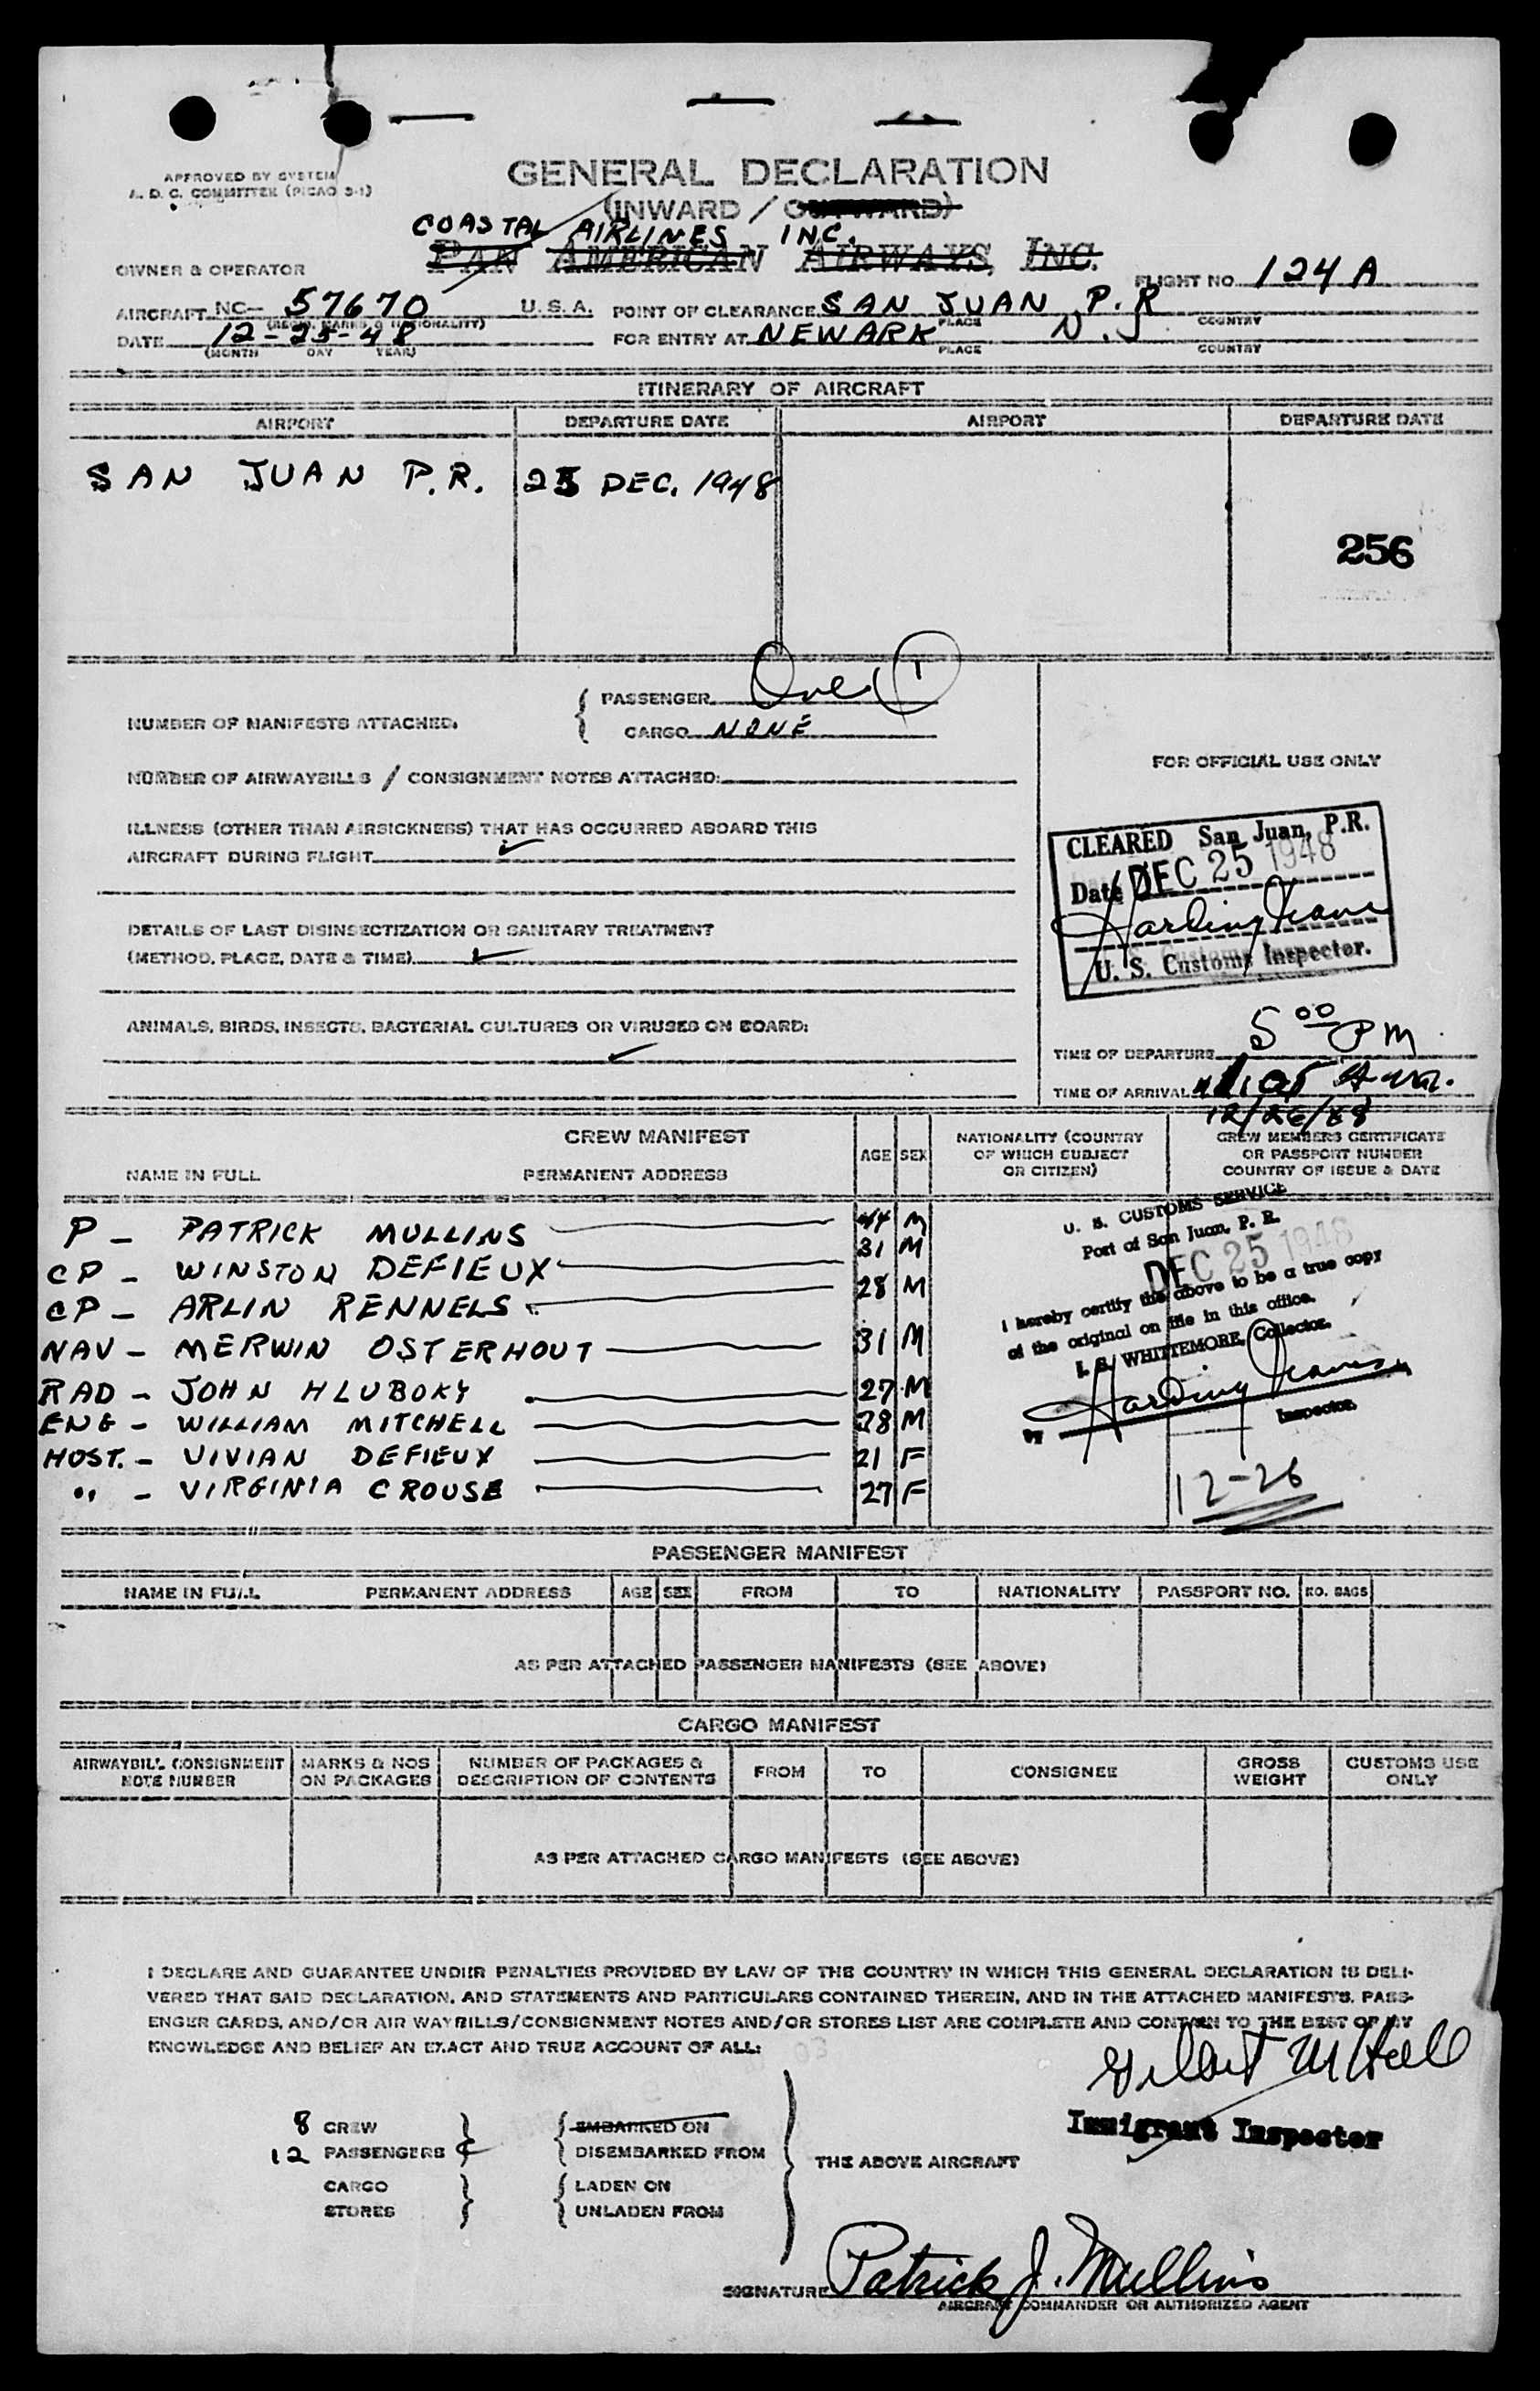 APPROVED BY SYSTEM
A. D. C. COMMITTEE (PICAO 3-1)
GENERAL DECLARATION
(INWARD / OUTWARD)
COASTAL AIRLINES INC.
PAN AMERICAN AIRWAYS, INC.
OWNER & OPERATOR
FLIGHT NO. 124 A
AIRCRAFT NC- 57670 U.S.A. POINT OF CLEARANCE SAN JUAN P.R
(REGN. MARKS & NATIONALITY) PLACE COUNTRY
DATE 12-25-48 FOR ENTRY AT NEWARK N.J
(MONTH DAY YEAR) PLACE COUNTRY
ITINERARY OF AIRCRAFT
AIRPORT DEPARTURE DATE AIRPORT DEPARTURE DATE
SAN JUAN P.R. 25 DEC. 1948
256
NUMBER OF MANIFESTS ATTACHED.
PASSENGER One (1)
CARGO NONE
FOR OFFICIAL USE ONLY
NUMBER OF AIRWAYBILLS / CONSIGNMENT NOTES ATTACHED:
ILLNESS (OTHER THAN AIRSICKNESS) THAT HAS OCCURRED ABOARD THIS
AIRCRAFT DURING FLIGHT ✓
CLEARED San Juan, P.R.
Date DEC 25 1948
U. S. Customs Inspector.
DETAILS OF LAST DISINSECTIZATION OR SANITARY TREATMENT
(METHOD, PLACE, DATE & TIME) ✓
ANIMALS, BIRDS, INSECTS, BACTERIAL CULTURES OR VIRUSES ON BOARD:
✓
TIME OF DEPARTURE 5 00 PM
TIME OF ARRIVAL
12/26/48
CREW MANIFEST
NAME IN FULL PERMANENT ADDRESS AGE SEX
NATIONALITY (COUNTRY
OF WHICH SUBJECT
OR CITIZEN)
CREW MEMBERS CERTIFICATE
OR PASSPORT NUMBER
COUNTRY OF ISSUE & DATE
P - PATRICK MULLINS 44 M
CP - WINSTON DEFIEUX 31 M
CP - ARLIN RENNELS 28 M
NAV - MERWIN OSTERHOUT 31 M
RAD - JOHN HLUBOKY 27 M
ENG - WILLIAM MITCHELL 28 M
HOST. - VIVIAN DEFIEUX 21 F
" - VIRGINIA CROUSE 27 F
U. S. CUSTOMS SERVICE
Port of San Juan, P. R.
DEC 25 1948
I hereby certify the above to be a true copy
of the original on file in this office.
WHITTEMORE, Collector.
by
Inspector.
12-26
PASSENGER MANIFEST
NAME IN FULL PERMANENT ADDRESS AGE SEX FROM TO NATIONALITY PASSPORT NO. NO. BAGS
AS PER ATTACHED PASSENGER MANIFESTS (SEE ABOVE)
CARGO MANIFEST
AIRWAYBILL CONSIGNMENT
NOTE NUMBER
MARKS & NOS
ON PACKAGES
NUMBER OF PACKAGES &
DESCRIPTION OF CONTENTS
FROM TO CONSIGNEE
GROSS
WEIGHT
CUSTOMS USE
ONLY
AS PER ATTACHED CARGO MANIFESTS (SEE ABOVE)
I DECLARE AND GUARANTEE UNDER PENALTIES PROVIDED BY LAW OF THE COUNTRY IN WHICH THIS GENERAL DECLARATION IS DELI-
VERED THAT SAID DECLARATION, AND STATEMENTS AND PARTICULARS CONTAINED THEREIN, AND IN THE ATTACHED MANIFESTS, PASS-
ENGER CARDS, AND/OR AIR WAYBILLS/CONSIGNMENT NOTES AND/OR STORES LIST ARE COMPLETE AND CONTAIN TO THE BEST OF MY
KNOWLEDGE AND BELIEF AN EXACT AND TRUE ACCOUNT OF ALL:
Immigrant Inspector
8 CREW
12 PASSENGERS
EMBARKED ON
DISEMBARKED FROM
THE ABOVE AIRCRAFT
CARGO
STORES
LADEN ON
UNLADEN FROM
SIGNATURE Patrick J. Mullins
AIRCRAFT COMMANDER OR AUTHORIZED AGENT